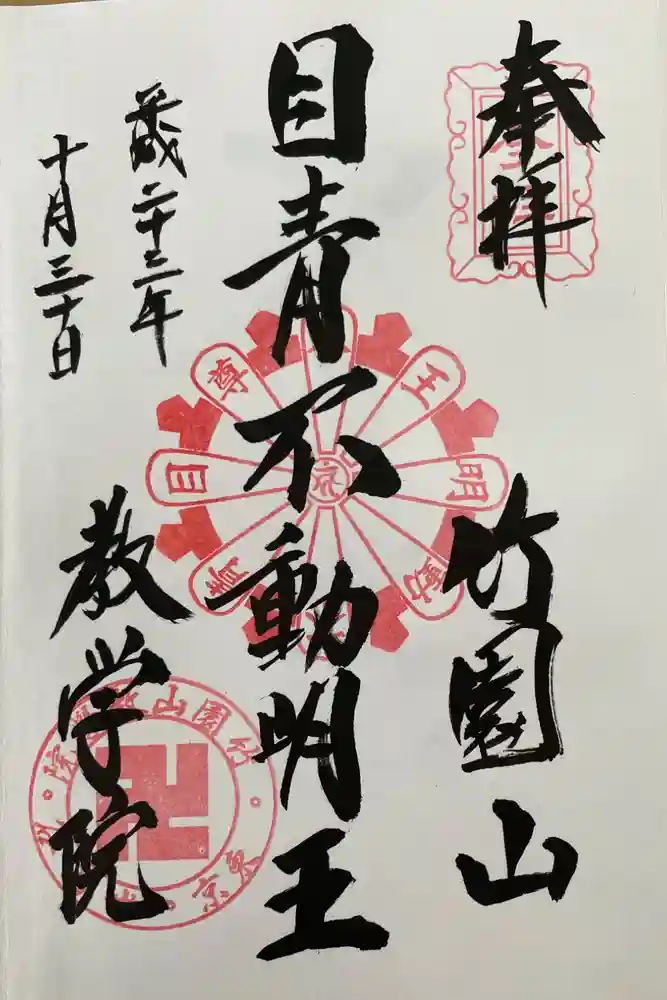 奉拝
竹園山
目青不動明王
平成二十三年
十月三十日
教学院
目青不動明王尊
竹園山 院
東京